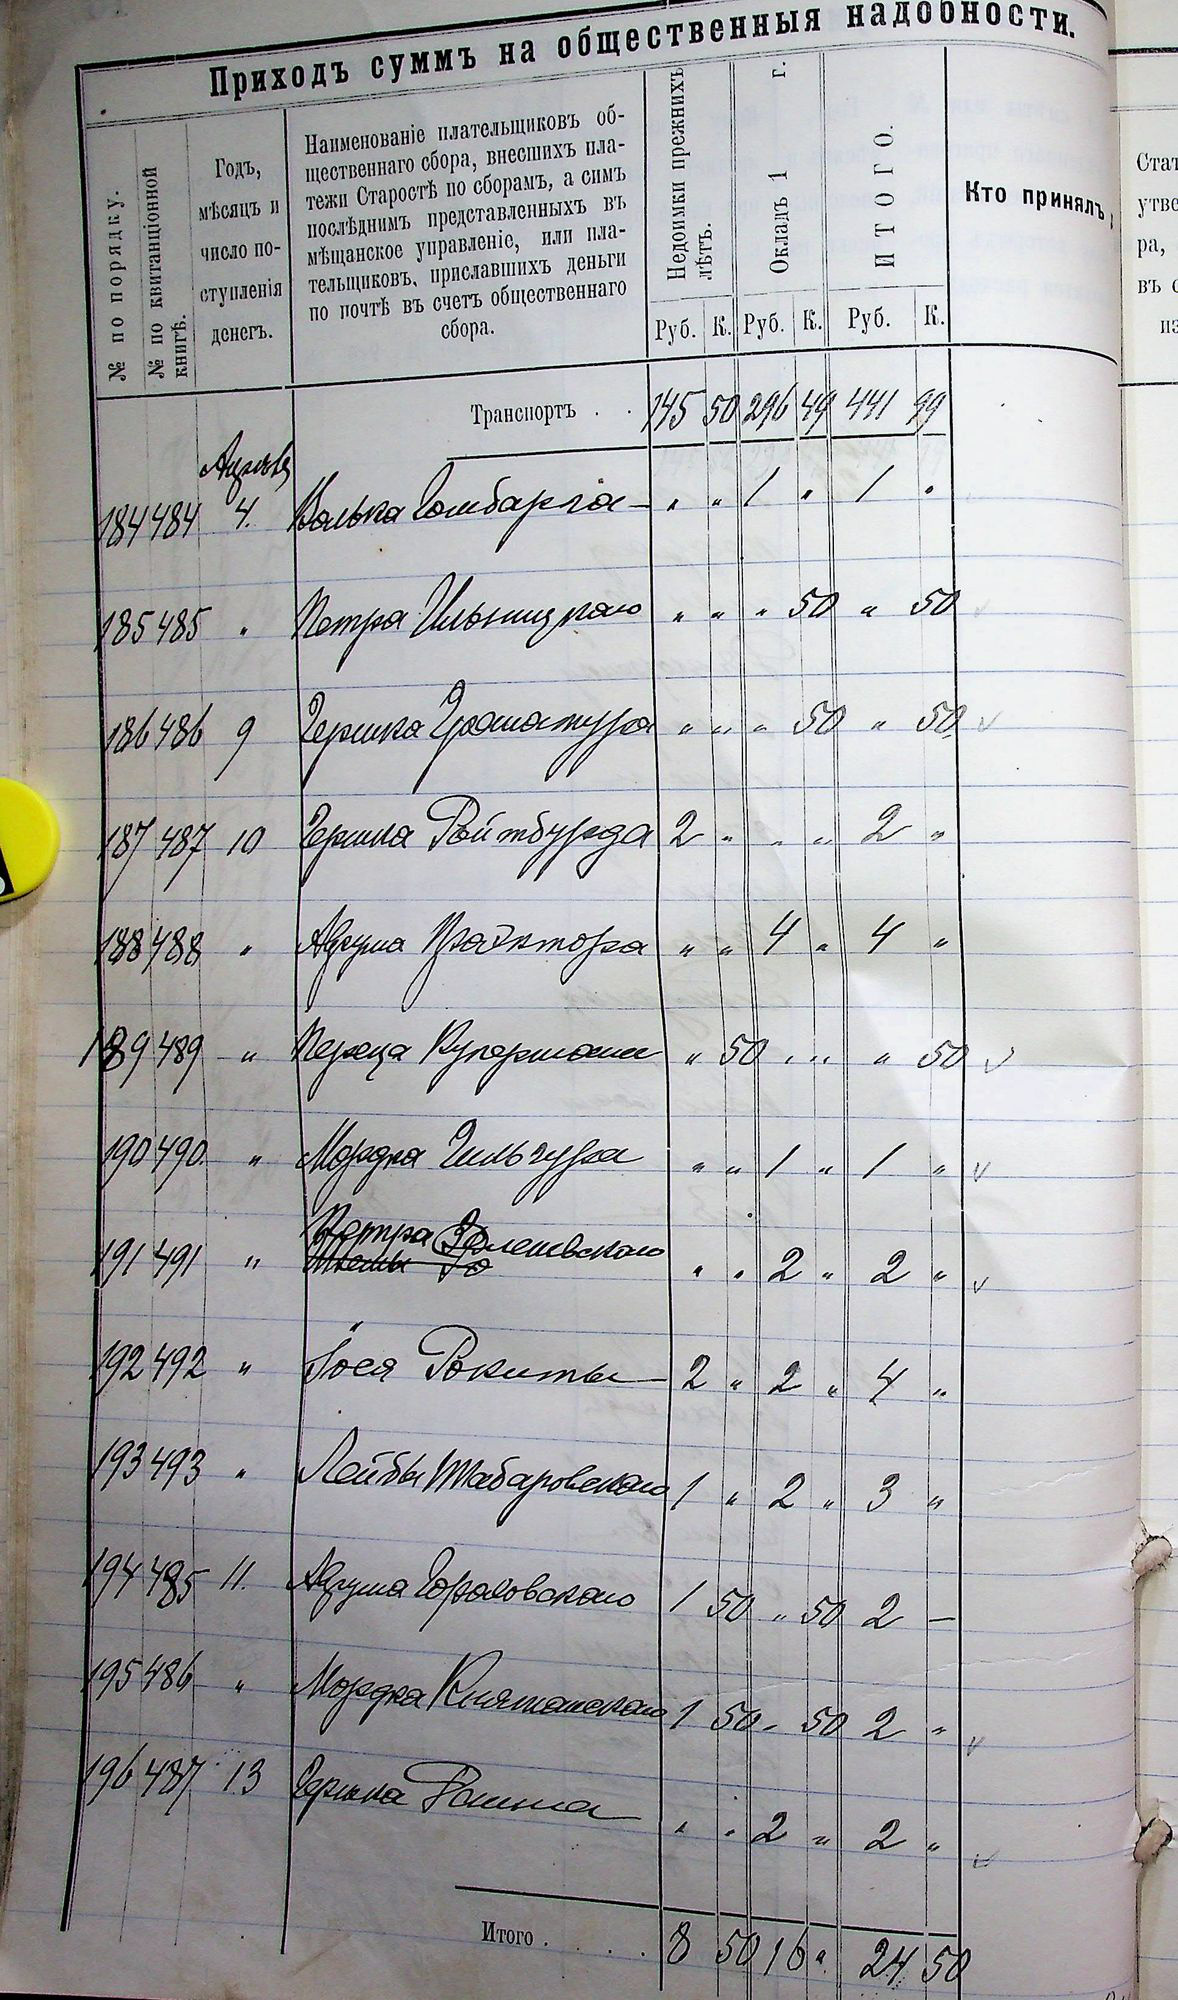 Приходъ суммъ на общественныя надобности.
№ по порядку.
№ по квитанціонной книгѣ.
Годъ,
мѣсяцъ и
число по-
ступленія
денегъ.
Наименованіе плательщиковъ об-
щественнаго сбора, внесшихъ пла-
тежи Старостѣ по сборамъ, а симъ
послѣднимъ представленныхъ въ
мѣщанское управленіе, или пла-
тельщиковъ, приславшихъ деньги
по почтѣ въ счетъ общественнаго
сбора.
Недоимки прежнихъ лѣтъ.
Окладъ 1 г.
ИТОГО.
Кто принялъ
Руб. К. Руб. К. Руб. К.
Транспортъ . . 145 50 296 49 441 99
184 484 4. Волька Гомбарга — „ „ 1 „ 1 „
185 485 „ Петра Ильницкаго „ „ „ 50 „ 50
186 486 9 Гершка „ „ „ 50 „ 50
187 487 10 Гершка Ройтбурда 2 „ „ „ 2 „
188 488 „ Абрума „ „ 4 „ 4 „
189 489 „ Переца Купермана „ 50 „ „ „ 50
190 490 „ Мордка „ „ 1 „ 1 „
191 491 „ Петра „ „ 2 „ 2 „
192 492 „ Іося Рокиты — 2 „ 2 „ 4 „
193 493 „ Лейбы Шабаровскаго 1 „ 2 „ 3 „
194 485 11. Абрума Гораховскаго 1 50 „ 50 2 —
195 486 „ Мордка 1 50 „ 50 2 „
196 487 13 Гершка „ „ 2 „ 2 „
Итого . . . . 8 50 16 „ 24 50
Стат
утве
ра,
въ с
из